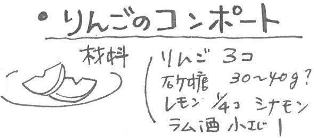 • りんごのコンポート
材料
りんご 3コ
砂糖 30〜40g?
レモン 1/4コ シナモン
ラム酒 小さじ1